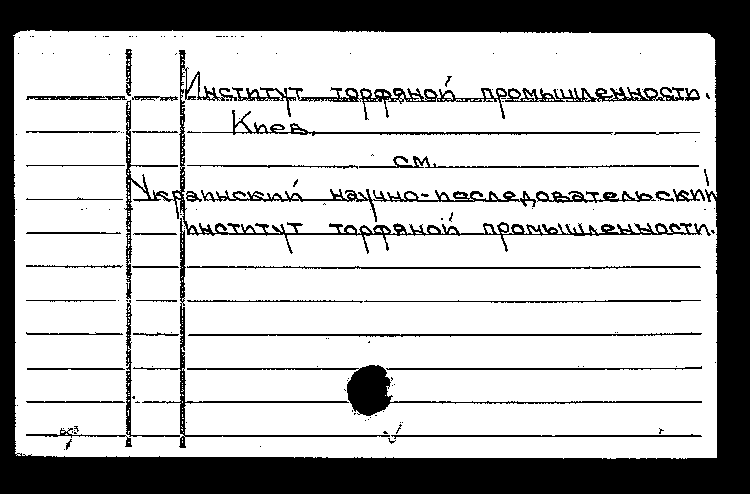 Институт торфяной промышленности.
Киев.
см.
Украинский научно-исследовательский
институт торфяной промышленности.